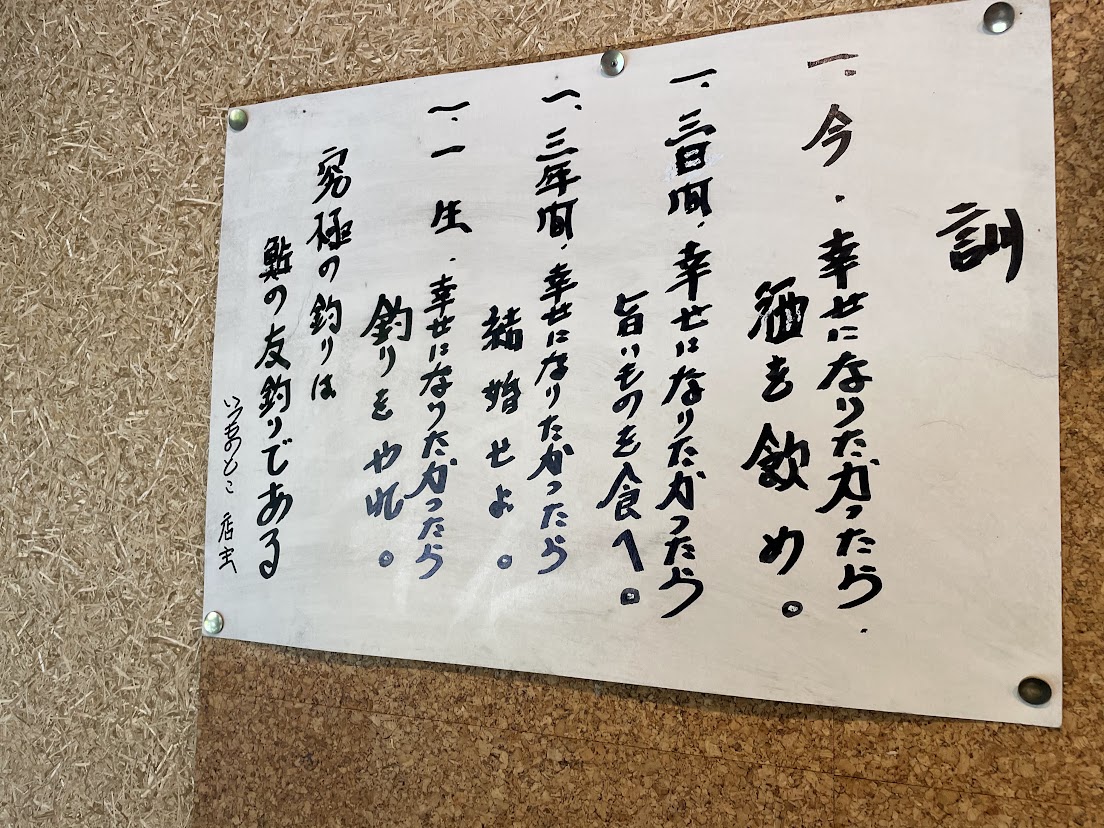 訓
一、今、幸せになりたかったら、
酒を飲め。
一、三日間、幸せになりたかったら
旨いものを食へ。
一、三年間、幸せになりたかったら
結婚せよ。
一、一生、幸せになりたかったら
釣りをやれ。
究極の釣りは
鮎の友釣りである
いつものとこ 店主